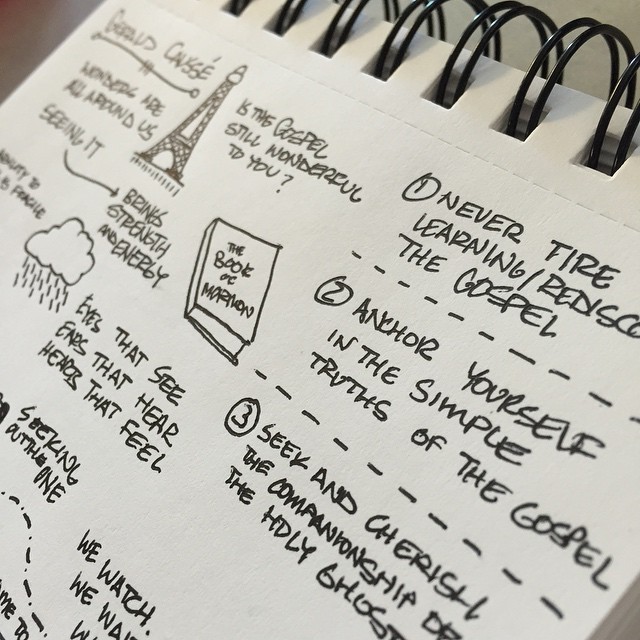 GERALD CAUSSÉ
WONDERS ARE
ALL AROUND US
SEEING IT
BRINGS
STRENGTH
AND ENERGY
IS THE GOSPEL
STILL WONDERFUL
TO YOU?
THE
BOOK
OF
MORMON
EYES THAT SEE
EARS THAT HEAR
HEARTS THAT FEEL
① NEVER TIRE
LEARNING/REDISCO
THE GOSPEL
② ANCHOR YOURSELF
IN THE SIMPLE
TRUTHS OF THE GOSPEL
③ SEEK AND CHERISH
THE COMPANIONSHIP OF
THE HOLY GHOST
SEEKING
ONE
WE WATCH.
WE WAIT